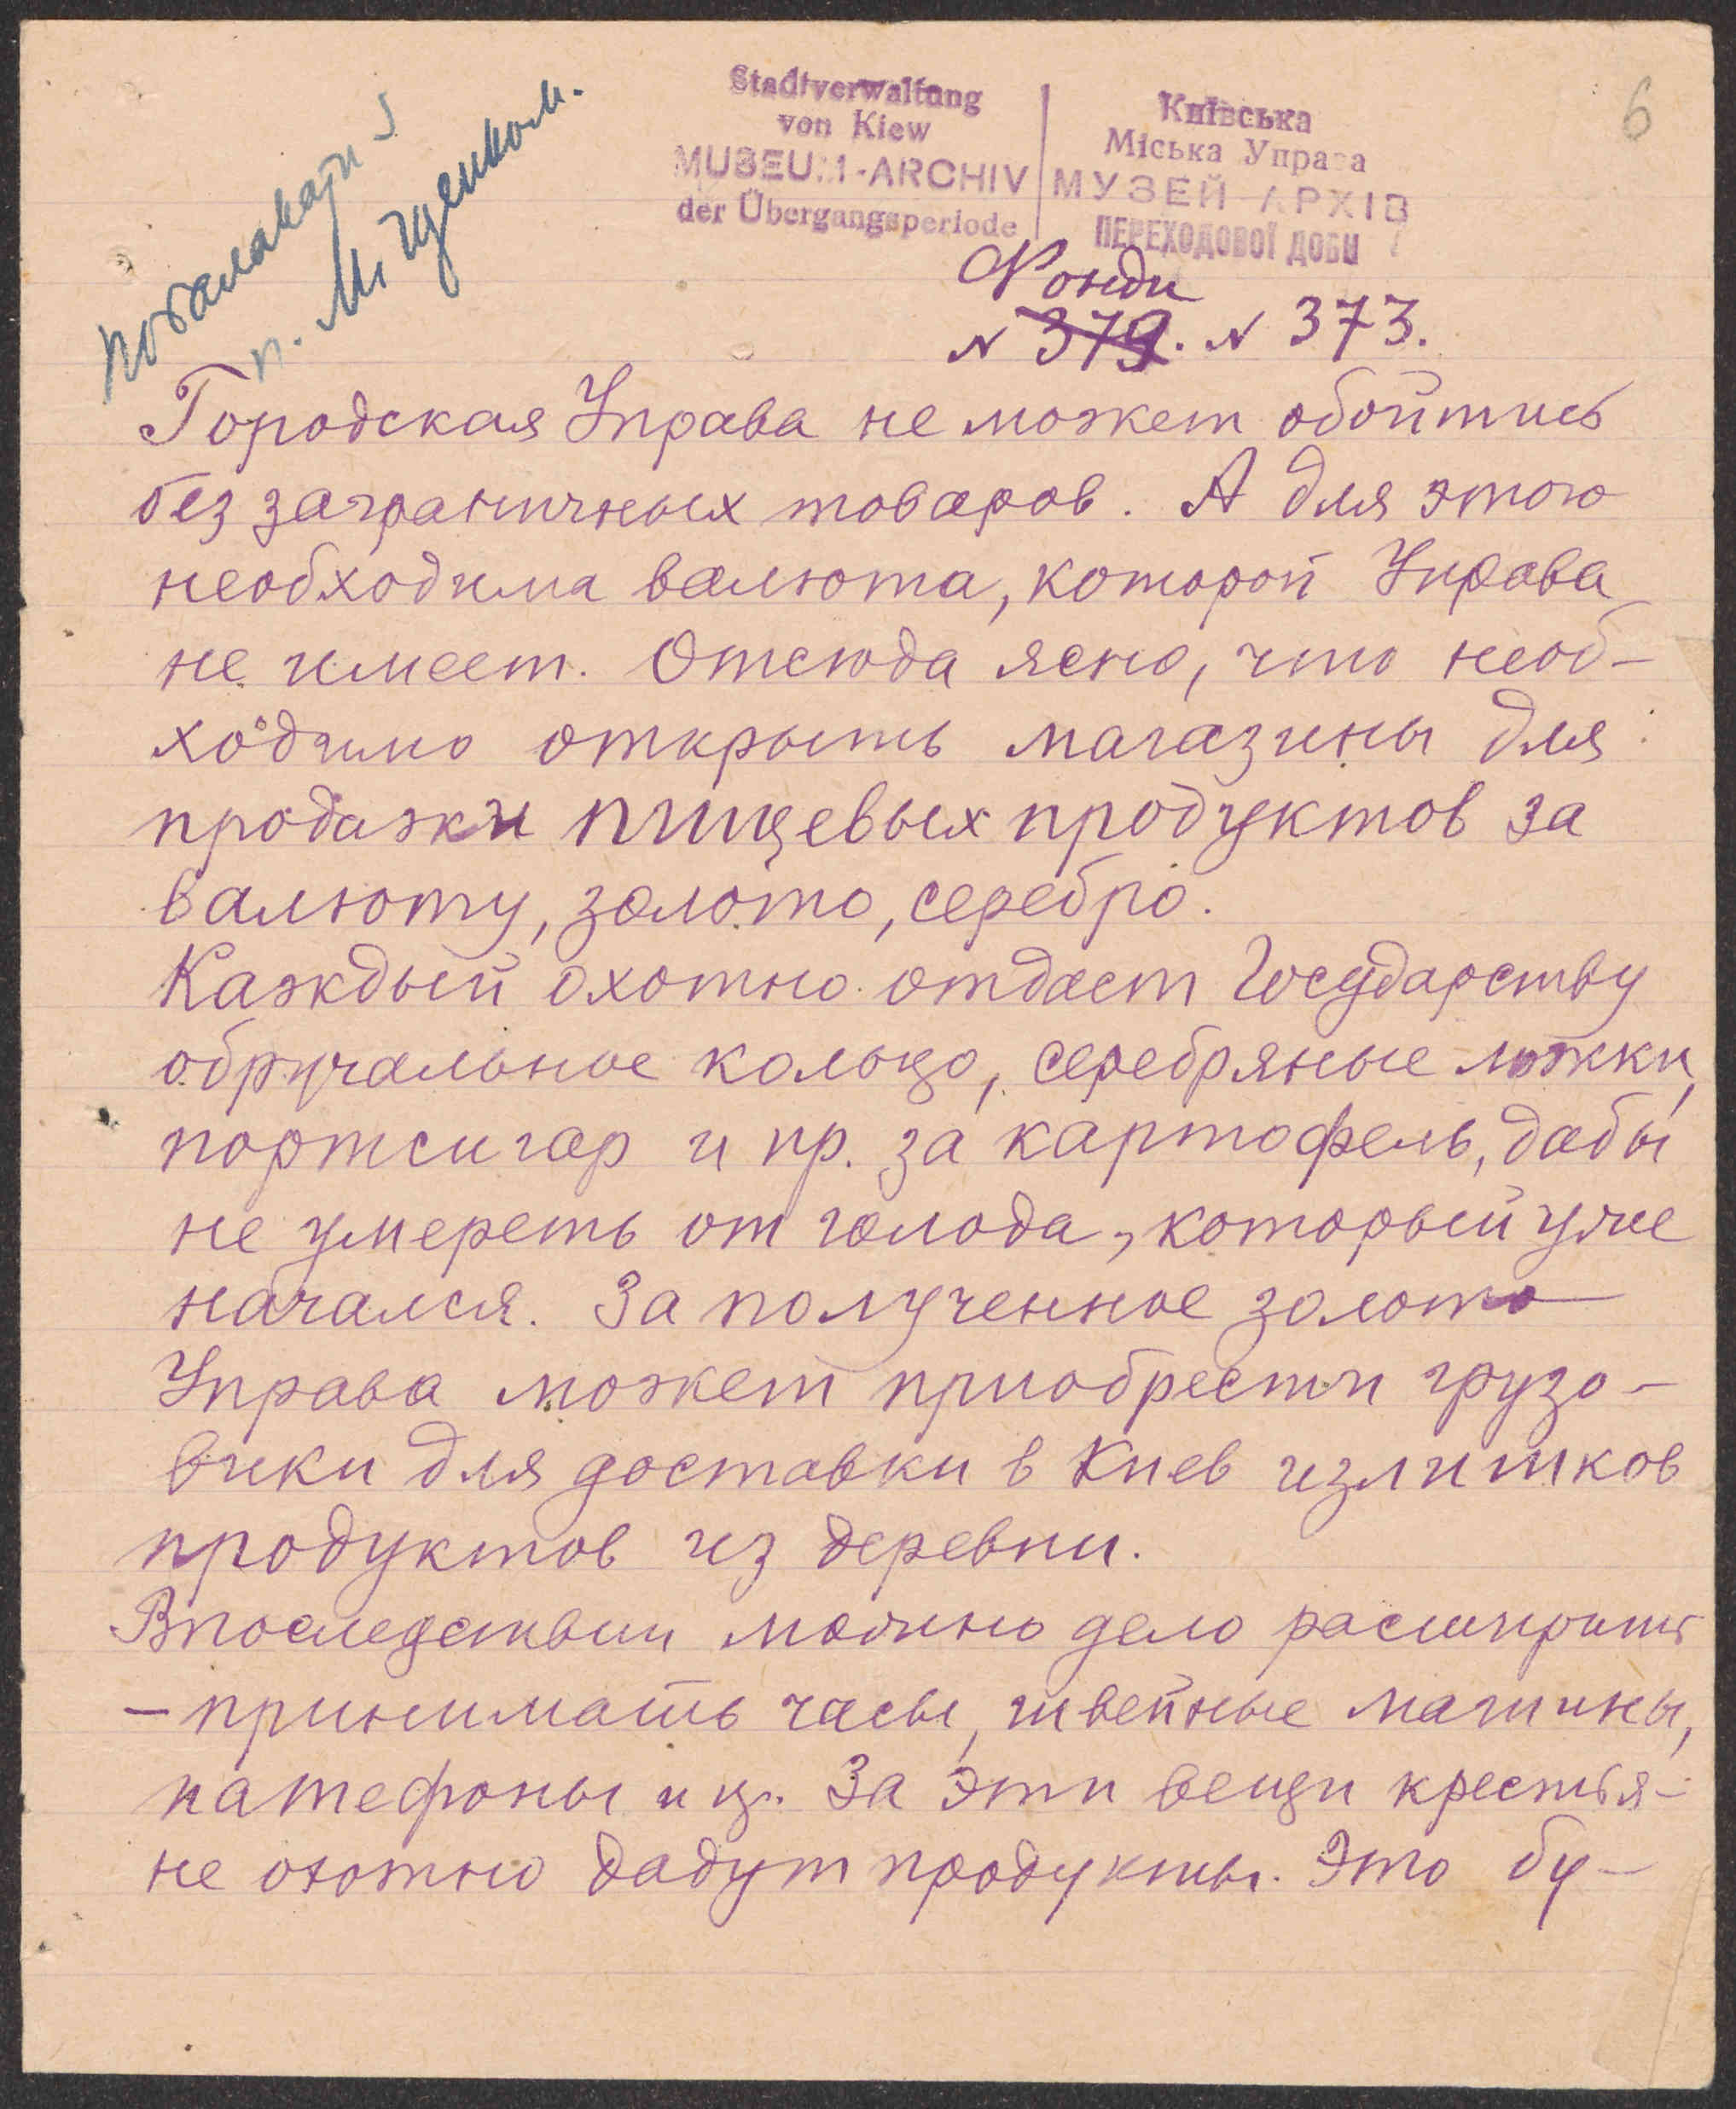 6
Stadtverwaltung
von Kiew
MUSEUM-ARCHIV
der Übergangsperiode
Київська
Міська Управа
МУЗЕЙ-АРХІВ
ПЕРЕХОДОВОЇ ДОБИ
побалакати з
п. Міщенком.
Фонди
N 379. N 373.
Городская Управа не может обойтись
без заграничных товаров. А для этого
необходима валюта, которой Управа
не имеет. Отсюда ясно, что необ-
ходимо открыть магазины для
продажи пищевых продуктов за
валюту, золото, серебро.
Каждый охотно отдаст Государству
обручальное кольцо, серебряные ложки,
портсигар и пр. за картофель, дабы
не умереть от голода, который уже
начался. За полученное золото
Управа может приобрести грузо-
вики для доставки в Киев излишков
продуктов из деревни.
Впоследствии можно дело расширить
- принимать часы, швейные машины,
патефоны и др. За эти вещи крестья-
не охотно дадут продукты. Это бу-